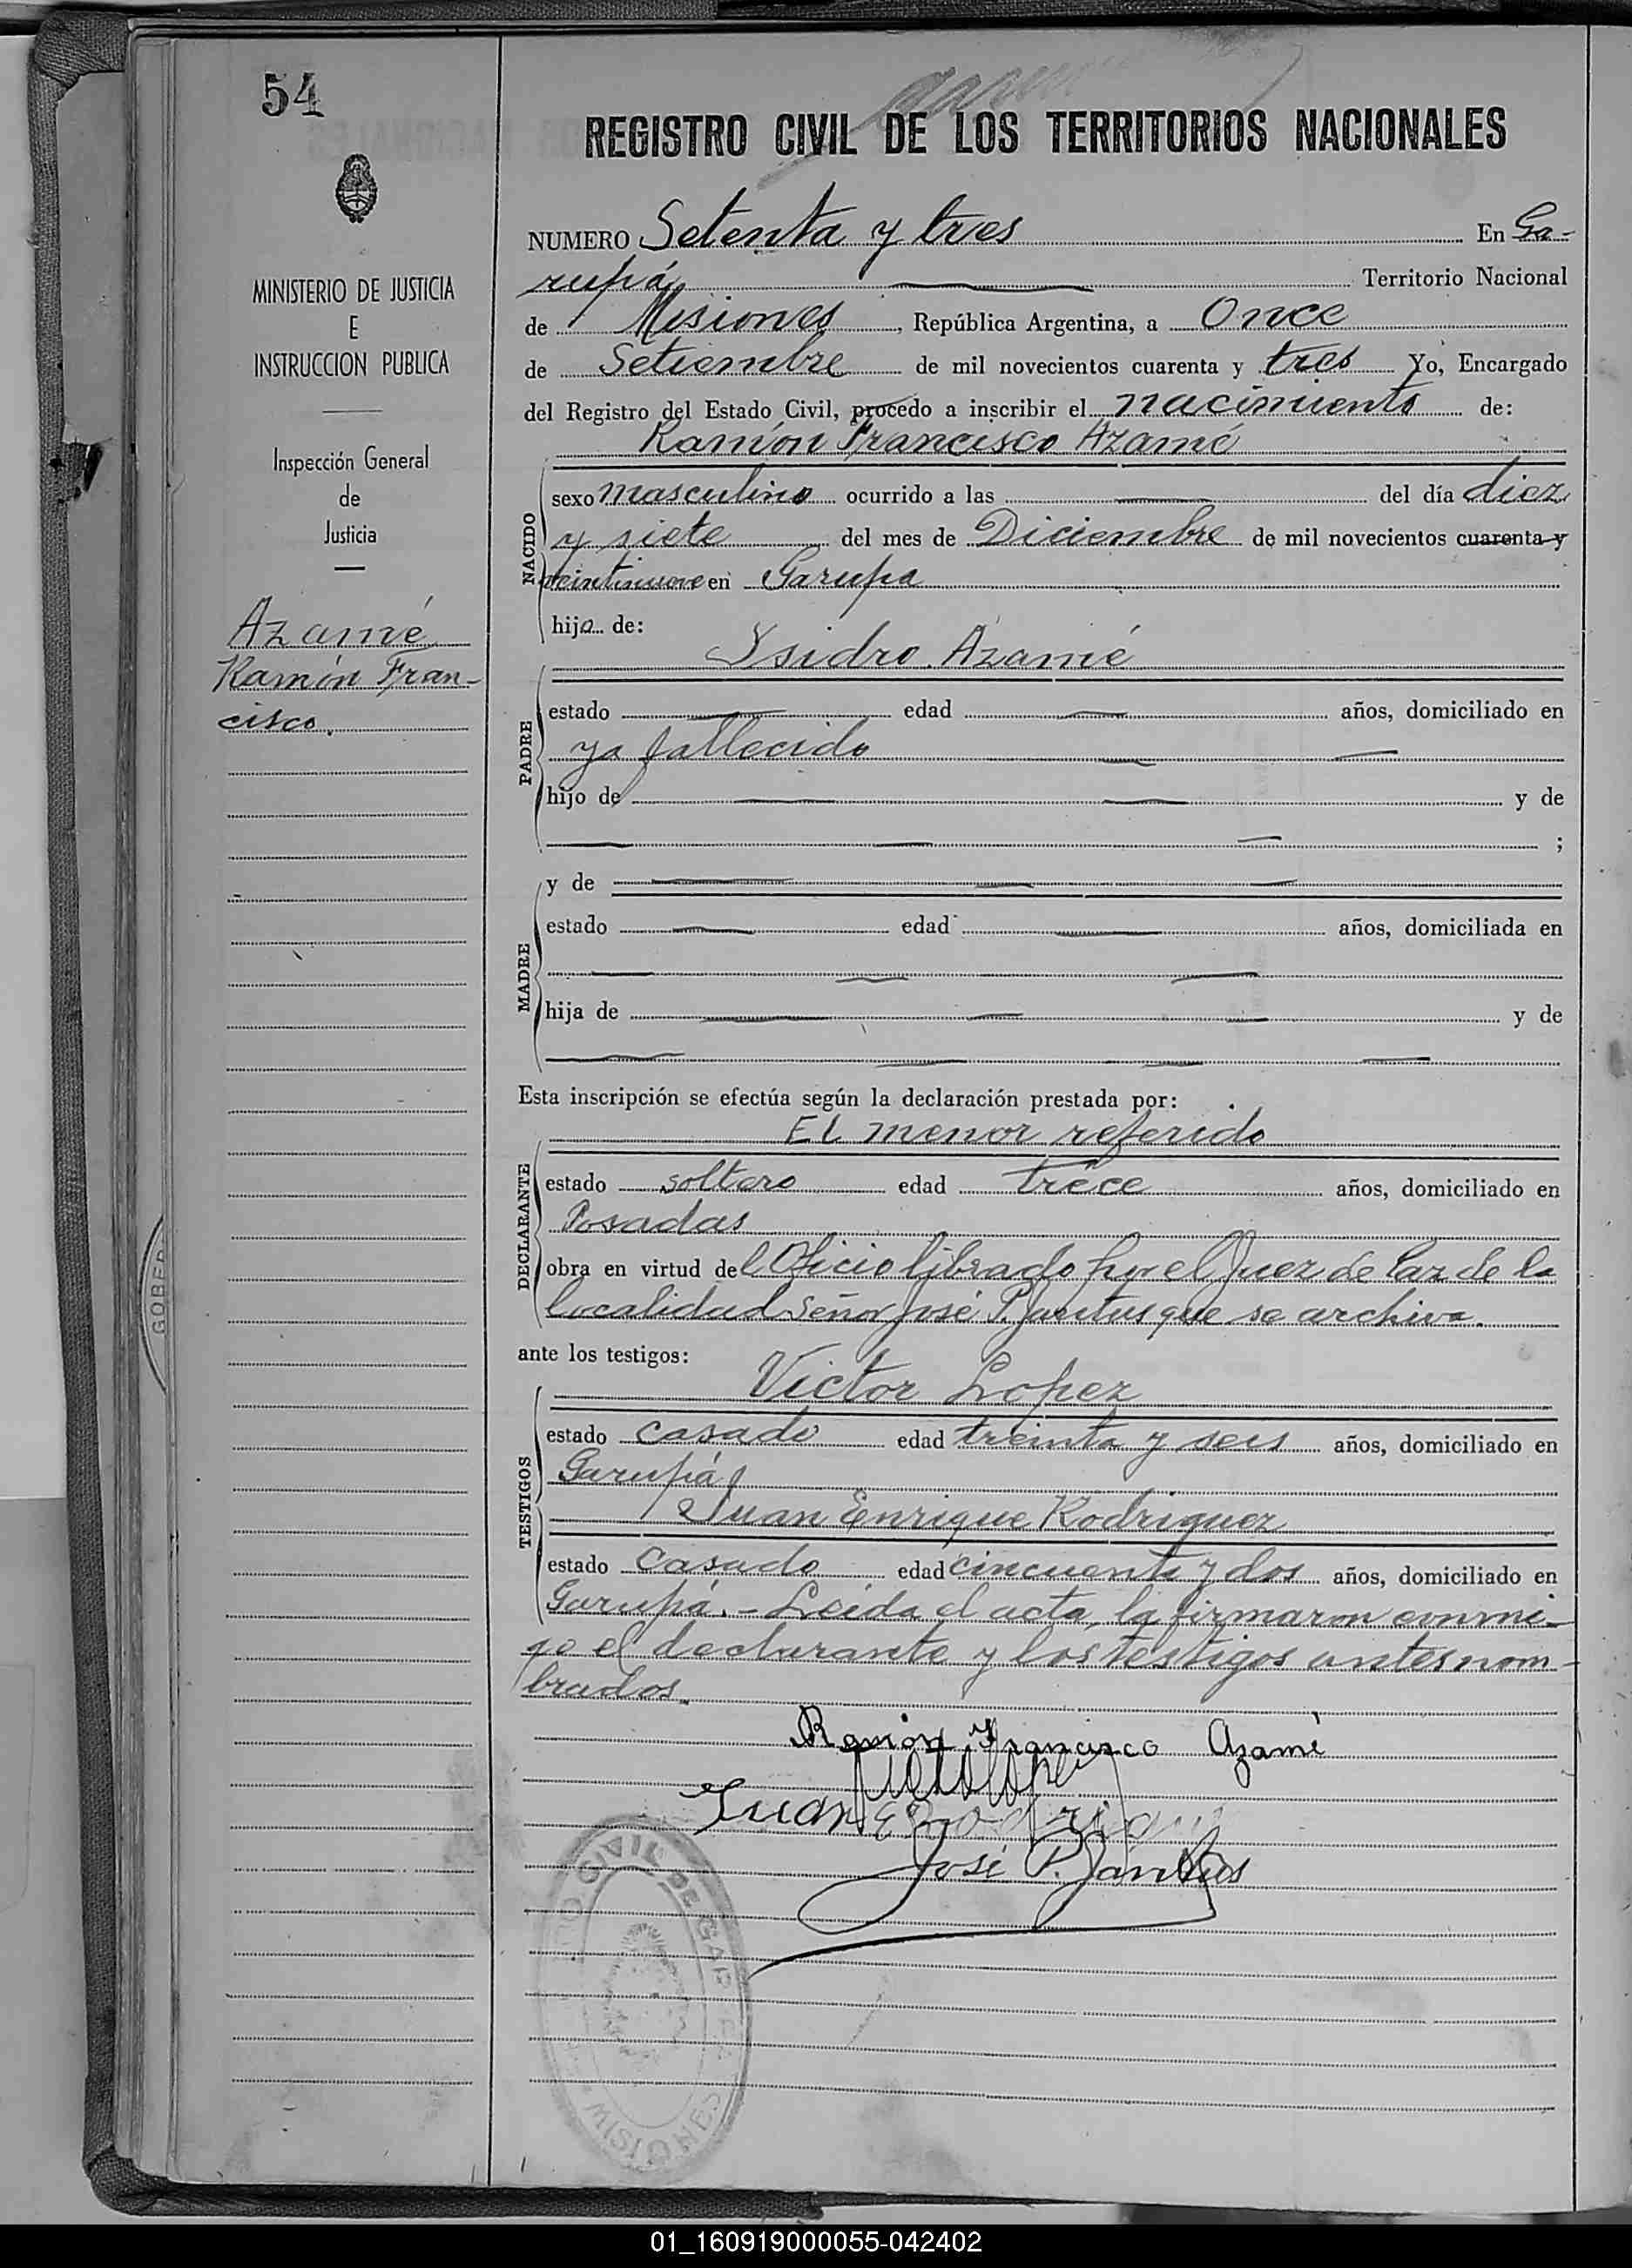 54
REGISTRO CIVIL DE LOS TERRITORIOS NACIONALES
MINISTERIO DE JUSTICIA
E
INSTRUCCION PUBLICA
Inspección General
de
Justicia
Azamé
Ramón Fran-
cisco.
NUMERO Setenta y tres En Ga-
rupá Territorio Nacional
de Misiones, República Argentina, a Once
de Setiembre de mil novecientos cuarenta y tres Yo, Encargado
del Registro del Estado Civil, procedo a inscribir el nacimiento de:
Ramón Francisco Azamé
NACIDO
sexo masculino ocurrido a las del día diez
y siete del mes de Diciembre de mil novecientos cuarenta y
veintinueve en Garupa
hijo de:
Ysidro Azamé
PADRE
estado edad años, domiciliado en
ya fallecido
hijo de y de
;
y de
MADRE
estado edad años, domiciliada en
hija de y de
Esta inscripción se efectúa según la declaración prestada por:
El menor referido
DECLARANTE
estado soltero edad trece años, domiciliado en
Posadas
obra en virtud del Oficio librado por el Juez de Paz de la
localidad Señor José P. que se archiva.
ante los testigos:
Victor Lopez
TESTIGOS
estado casado edad treinta y seis años, domiciliado en
Garupá
Juan Enrique Rodriguez
estado casado edad cincuenta y dos años, domiciliado en
Garupá. - Leída el acta, la firmaron conmi-
go el declarante y los testigos antes nom-
brados.
Ramón Francisco Azamé
Juan E Rodrigu
José P.
CIVIL DE GAR
MISIONES
GOBER
01_160919000055-042402